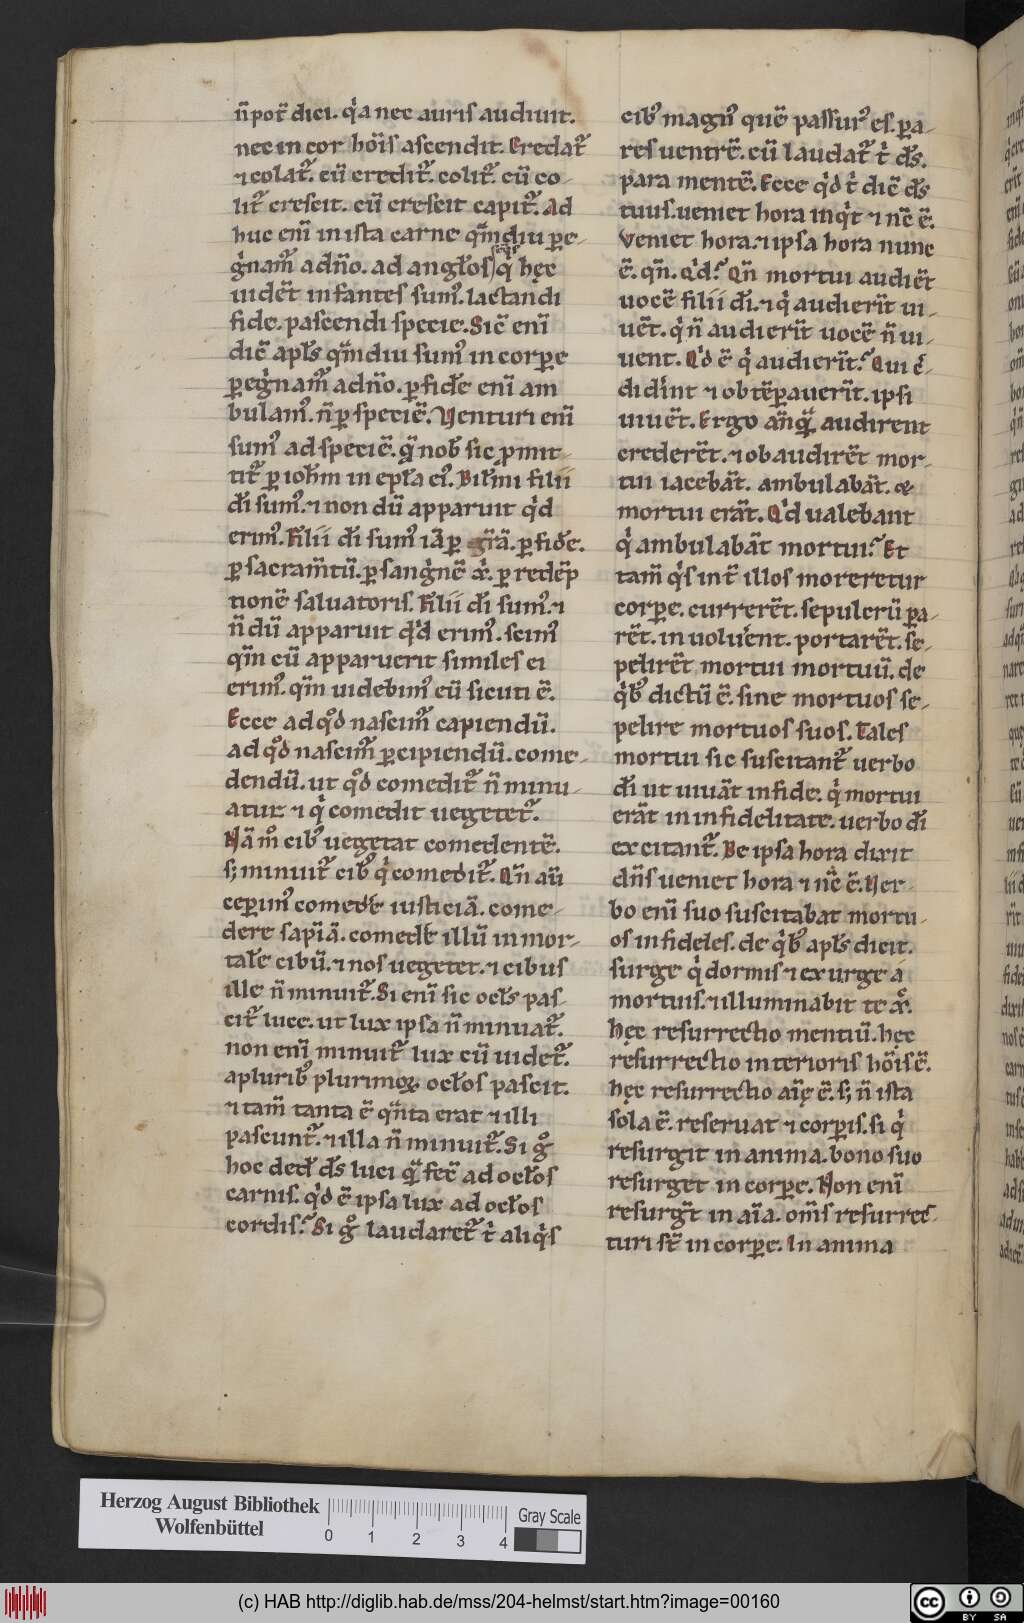 n̄ pot̄ dici. qͥa nec auris audiuit.
nec in cor hōis ascendit. Credat᷑
⁊ colat᷑. cū credit᷑. colit᷑. cū co-
lit᷑ crescit. cū crescit capit᷑. Ad
huc eni̅ in ista carne qm̄diu ꝑe-
gͥnam᷑ ad n̄o. ad angl̄os qͥ hęc
uidēt infantes sumꝰ. lactandi
fide. pascendi specie. Sic̄ eni̅
dic̄ apl̄s qm̄diu sumꝰ in corꝑe
ꝑegͥnam᷑ ad n̄o. ꝑ fidē eni̅ am
bulamꝰ. n̄ ꝑ speciē. Venturi eni̅
sumꝰ ad speciē. q̄ nob̄ sic ꝓmit-
tit᷑ ꝑ ioh̄m in epl̄a eiꝰ. Dil̄mi filii
dī sumꝰ. ⁊ non dū apparuit qͥd
erimꝰ. Filii dī sumꝰ iā ꝑ gr̄ā. ꝑ fidē.
ꝑ sacram̄tū. ꝑ sangͥnē x̄ᵢ. ꝑ redēp
tionē saluatoris. Filii dī sumꝰ. ⁊
n̄ dū apparuit qͥd erimꝰ. scimꝰ
qm̄ cū apparuerit similes ei
erimꝰ. qm̄ uidebimꝰ eū sicuti ē.
Ecce ad qͦd nascim᷑ capiendū.
ad qͦd nascim᷑ ꝑcipiendū. come-
dendū. ut qͦd comedit᷑ n̄ minu-
atur ⁊ qͥ comedit uegetet᷑.
Nā mͦ cibꝰ uegetat comedentē.
s; minuit᷑ cibꝰ qͥ comedit᷑. Qn̄ aū
ceꝑimꝰ comedē iusticiā. come-
dere sapi̅ā. comedē illū in mor-
tal̄e cibū. ⁊ nos uegetet. ⁊ cibus
ille n̄ minuit᷑. Si eni̅ sic ocl̄s pas-
cit᷑ luce. ut lux ipsa n̄ minuat᷑.
non eni̅ minuit᷑ lux cū uidet᷑.
a pluribꝰ plurimoꝝ ocl̄os pascit.
⁊ tam̄ tanta ē qn̄ta erat ⁊ illi
pascunt᷑. ⁊ illa n̄ minuit᷑. Si gͦ
hoc ded̄ ds̄ luci q̄ fec̄ ad ocl̄os
carnis. qͥd ē ipsa lux ad ocl̄os
cordis? Si gͦ laudaret᷑ tͥ aliqͥs
cibꝰ magnꝰ quē passurꝰ es. ꝑa-
res uentrē. cū laudat᷑ tͥ ds̄.
para mentē. Ecce qͥd tͥ dic̄ ds̄
tuus. ueniet hora inqͥt ⁊ nc̄ ē.
Veniet hora. ⁊ ipsa hora nunc
ē. qn̄. Qͥd? Qn̄ mortui audiēt
uocē filii dī. ⁊ qͥ audieri̅t ui-
uēt. qͥ n̄ audieri̅t uocē n̄ ui-
uent. Qͥd ē qͥ audieri̅t? Qui c̄-
didi̅nt ⁊ obtēꝑaueri̅t. ipsi
uiuēt. Ergo ān qͣ audirent
crederēt. ⁊ obaudirēt mor-
tui iacebāt. ambulabāt. &
mortui erāt. Qͥd ualebant
qͥ ambulabāt mortui? Et
tam̄ qͥs int̄ illos moreretur
corꝑe. currerēt. sepulcrū ꝑa-
rēt. in uoluēnt. portarēt. se-
pelirēt mortui mortuū. de
qͥbꝰ dictū ē. sine mortuos se-
pelire mortuos suos. Tales
mortui sic suscitant᷑ uerbo
dī ut uiuāt in fide. qͥ mortui
erāt in infidelitate. uerbo dī
excitant᷑. De ipsa hora dixit
dn̄s ueniet hora ⁊ nc̄ ē. Ver-
bo eni̅ suo suscitabat mortu-
os infideles. de qͥbꝰ apl̄s dicit.
surge qͥ dormis ⁊ exurge a
mortuis. ⁊ illuminabit te x̄c.
hęc resurrectio mentiū. hęc
resurrectio interioris hōis ē.
hęc resurrectio aīę ē. s; n̄ ista
sola ē. reseruat ⁊ corꝑis. si qͥ
resurgit in anima. bono suo
resurget in corꝑe. Non eni̅
resurgūt in aīa. om̄s resurrec-
turi st̄ in corꝑe. In anima
Herzog August Bibliothek
Wolfenbüttel
0 1 2 3 4
Gray Scale
(c) HAB http://diglib.hab.de/mss/204-helmst/start.htm?image=00160
cc BY SA